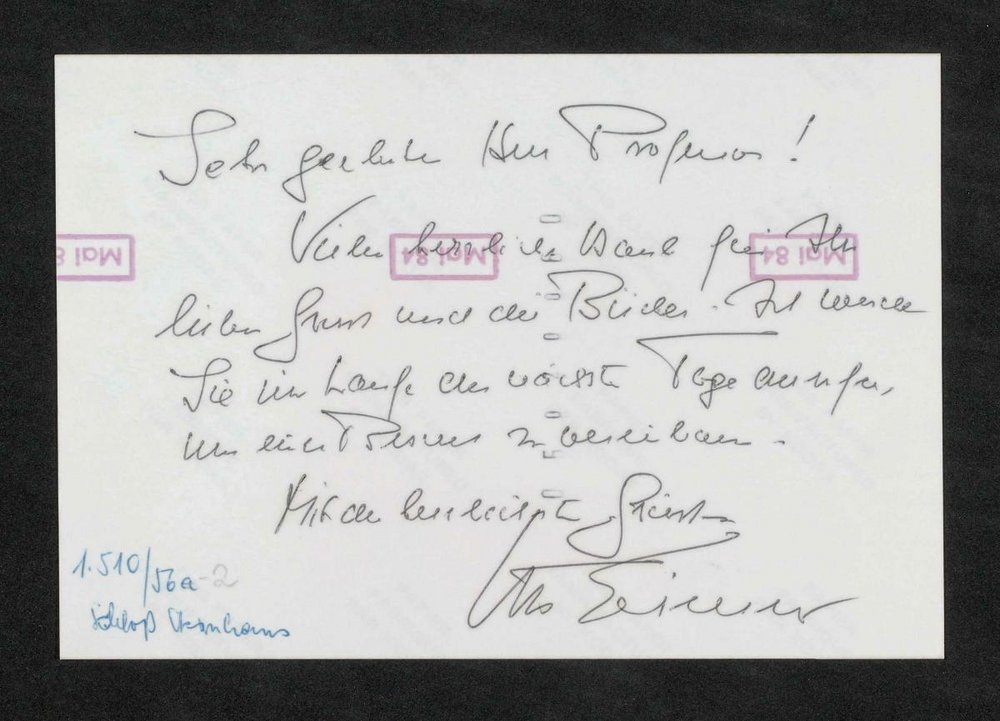 Sehr geehrter Herr Professor!
Vielen herzlichen Dank für Ihr
Mai 84
Mai 84
Mai 8
lieben Gruss und die Bücher. Ich werde
Sie im Laufe der nächsten Tage anrufen,
um einen Besuch zu vereinbaren.
Mit den herzlichsten Grüssen
1.510/56a-2
Schloß